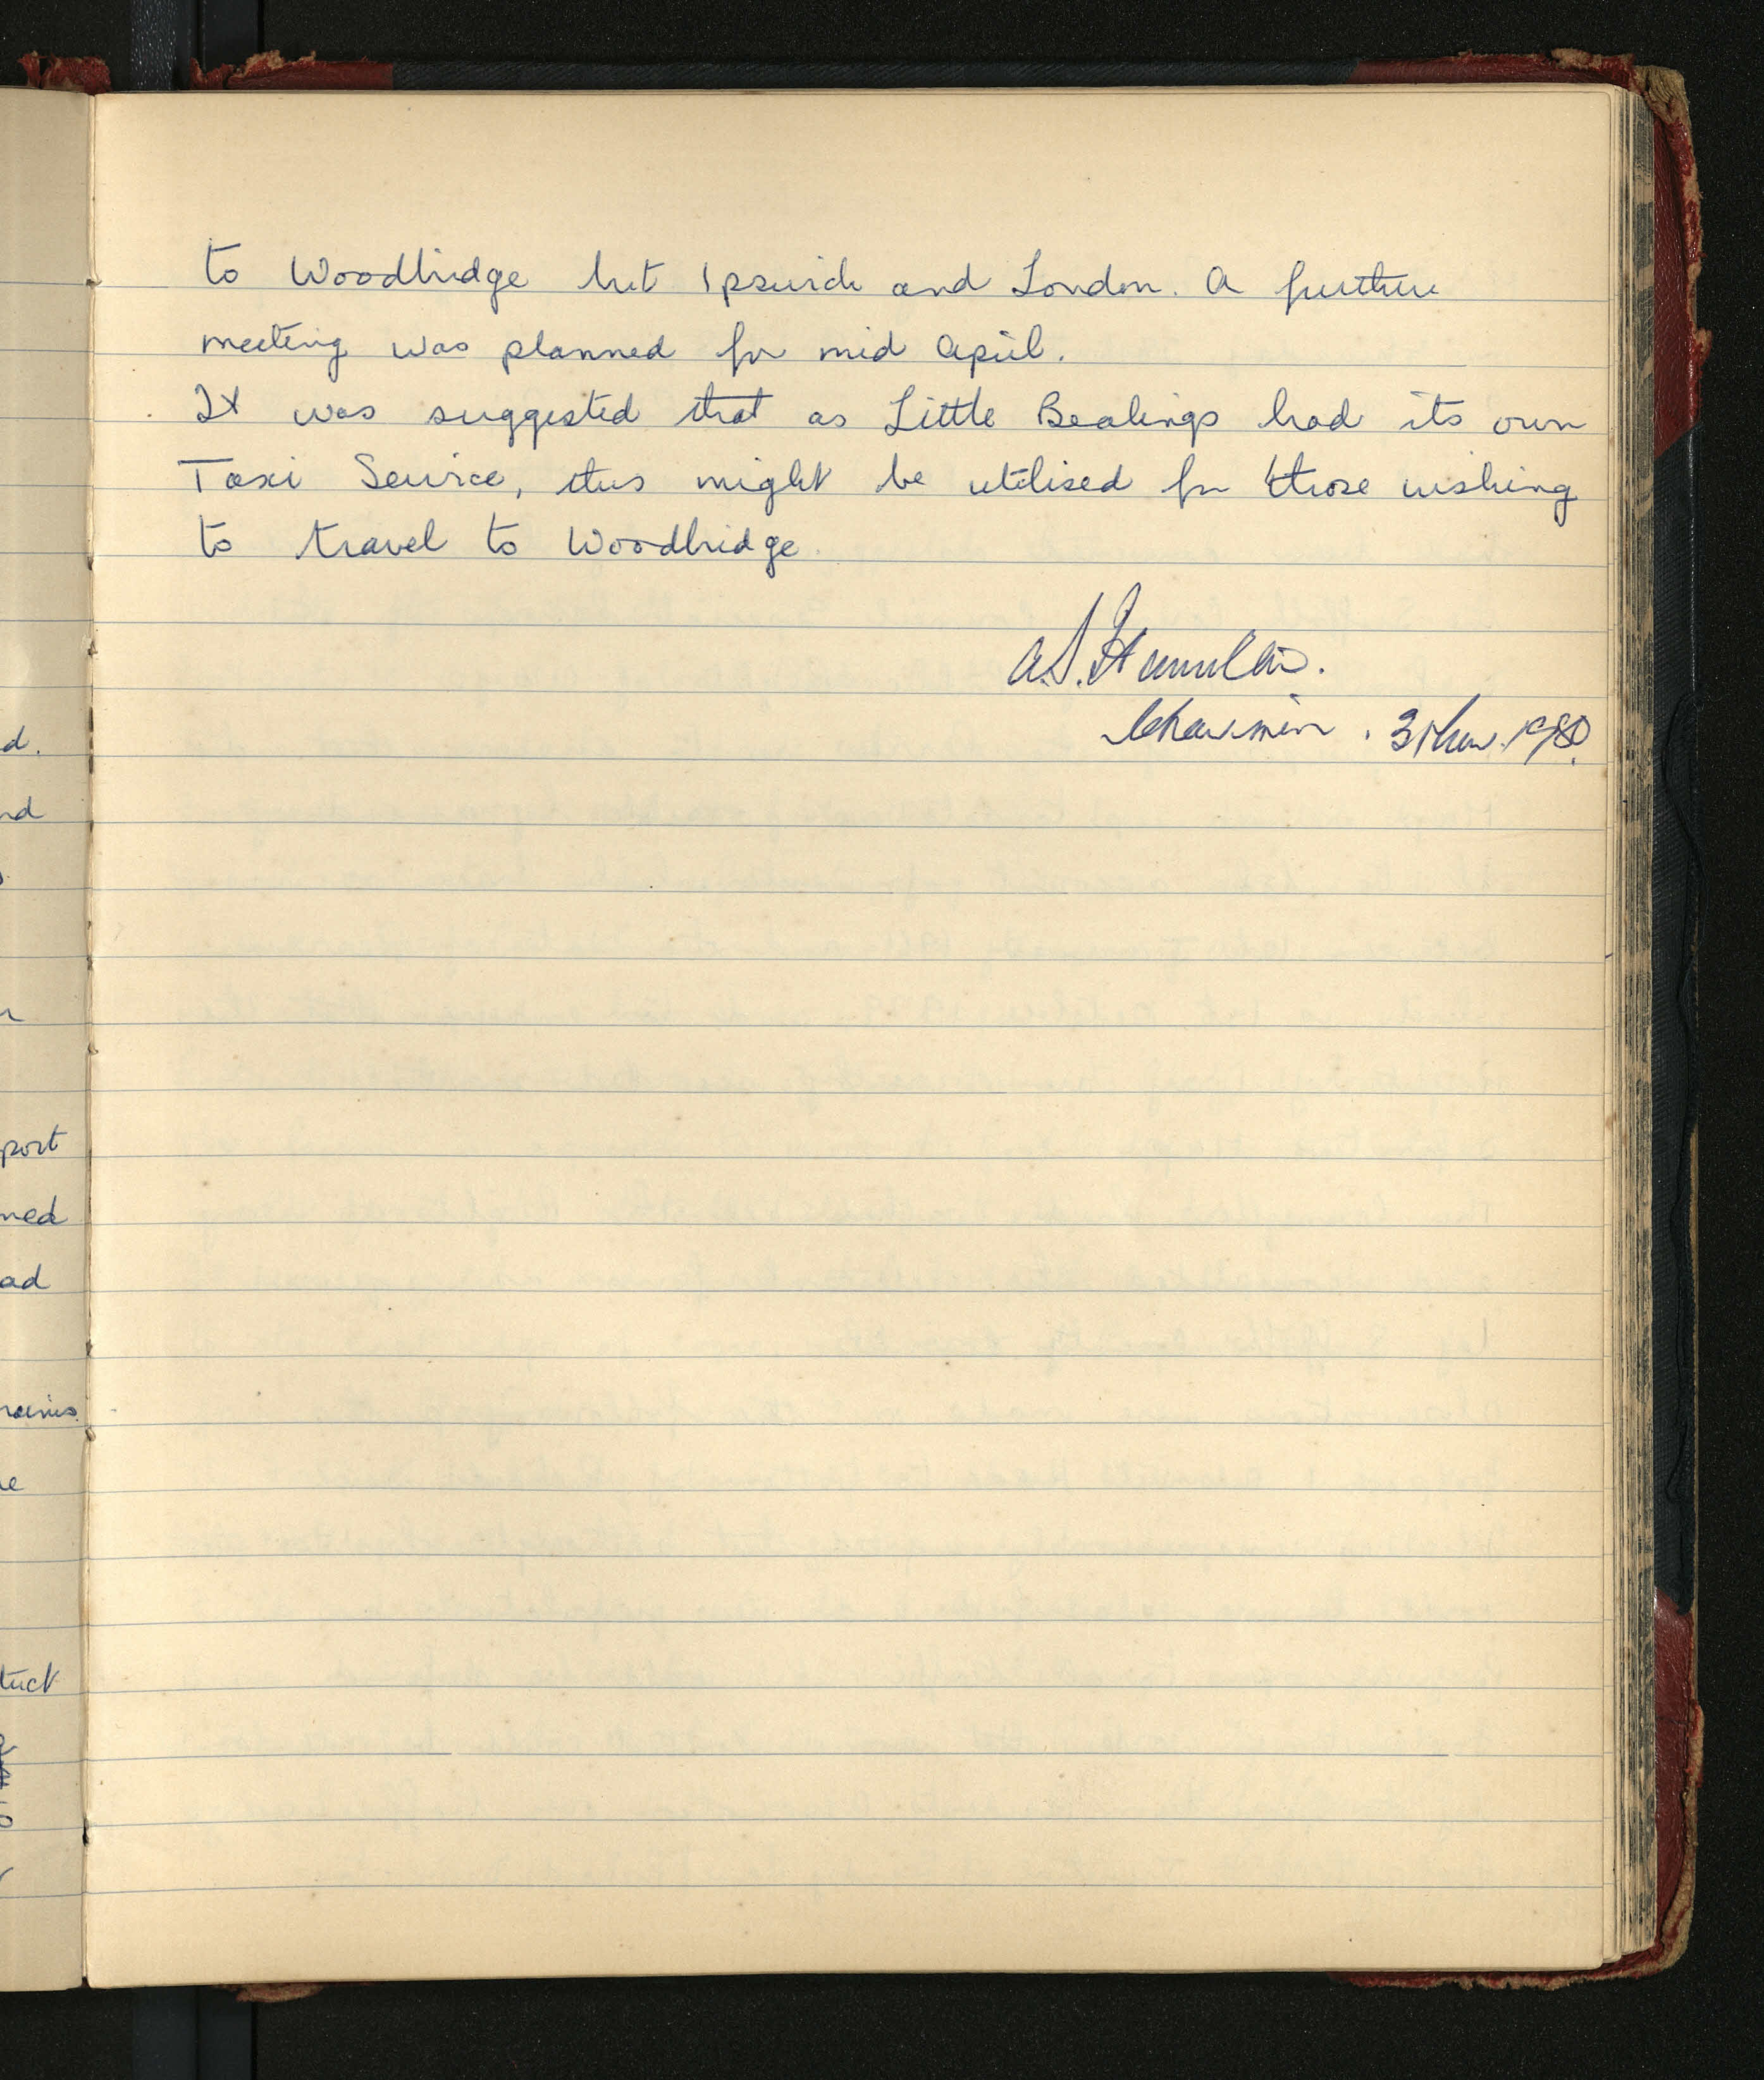 d.
nd
port
ned
ad
e
to Woodbridge but Ipswich and London. A further
meeting was planned for mid April.
It was suggested that as Little Bealings had its own
Taxi Service, this might be utilised for those wishing
to travel to Woodbridge
Chairman . 1980.